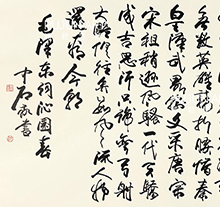 無數英雄競折腰惜秦
皇漢武略輸文采唐宗
宋祖稍遜風騷一代天驕
成吉思汗只識彎弓射
大雕俱往矣數風流人物
還看今朝
毛澤東詞沁園春
中石敬書